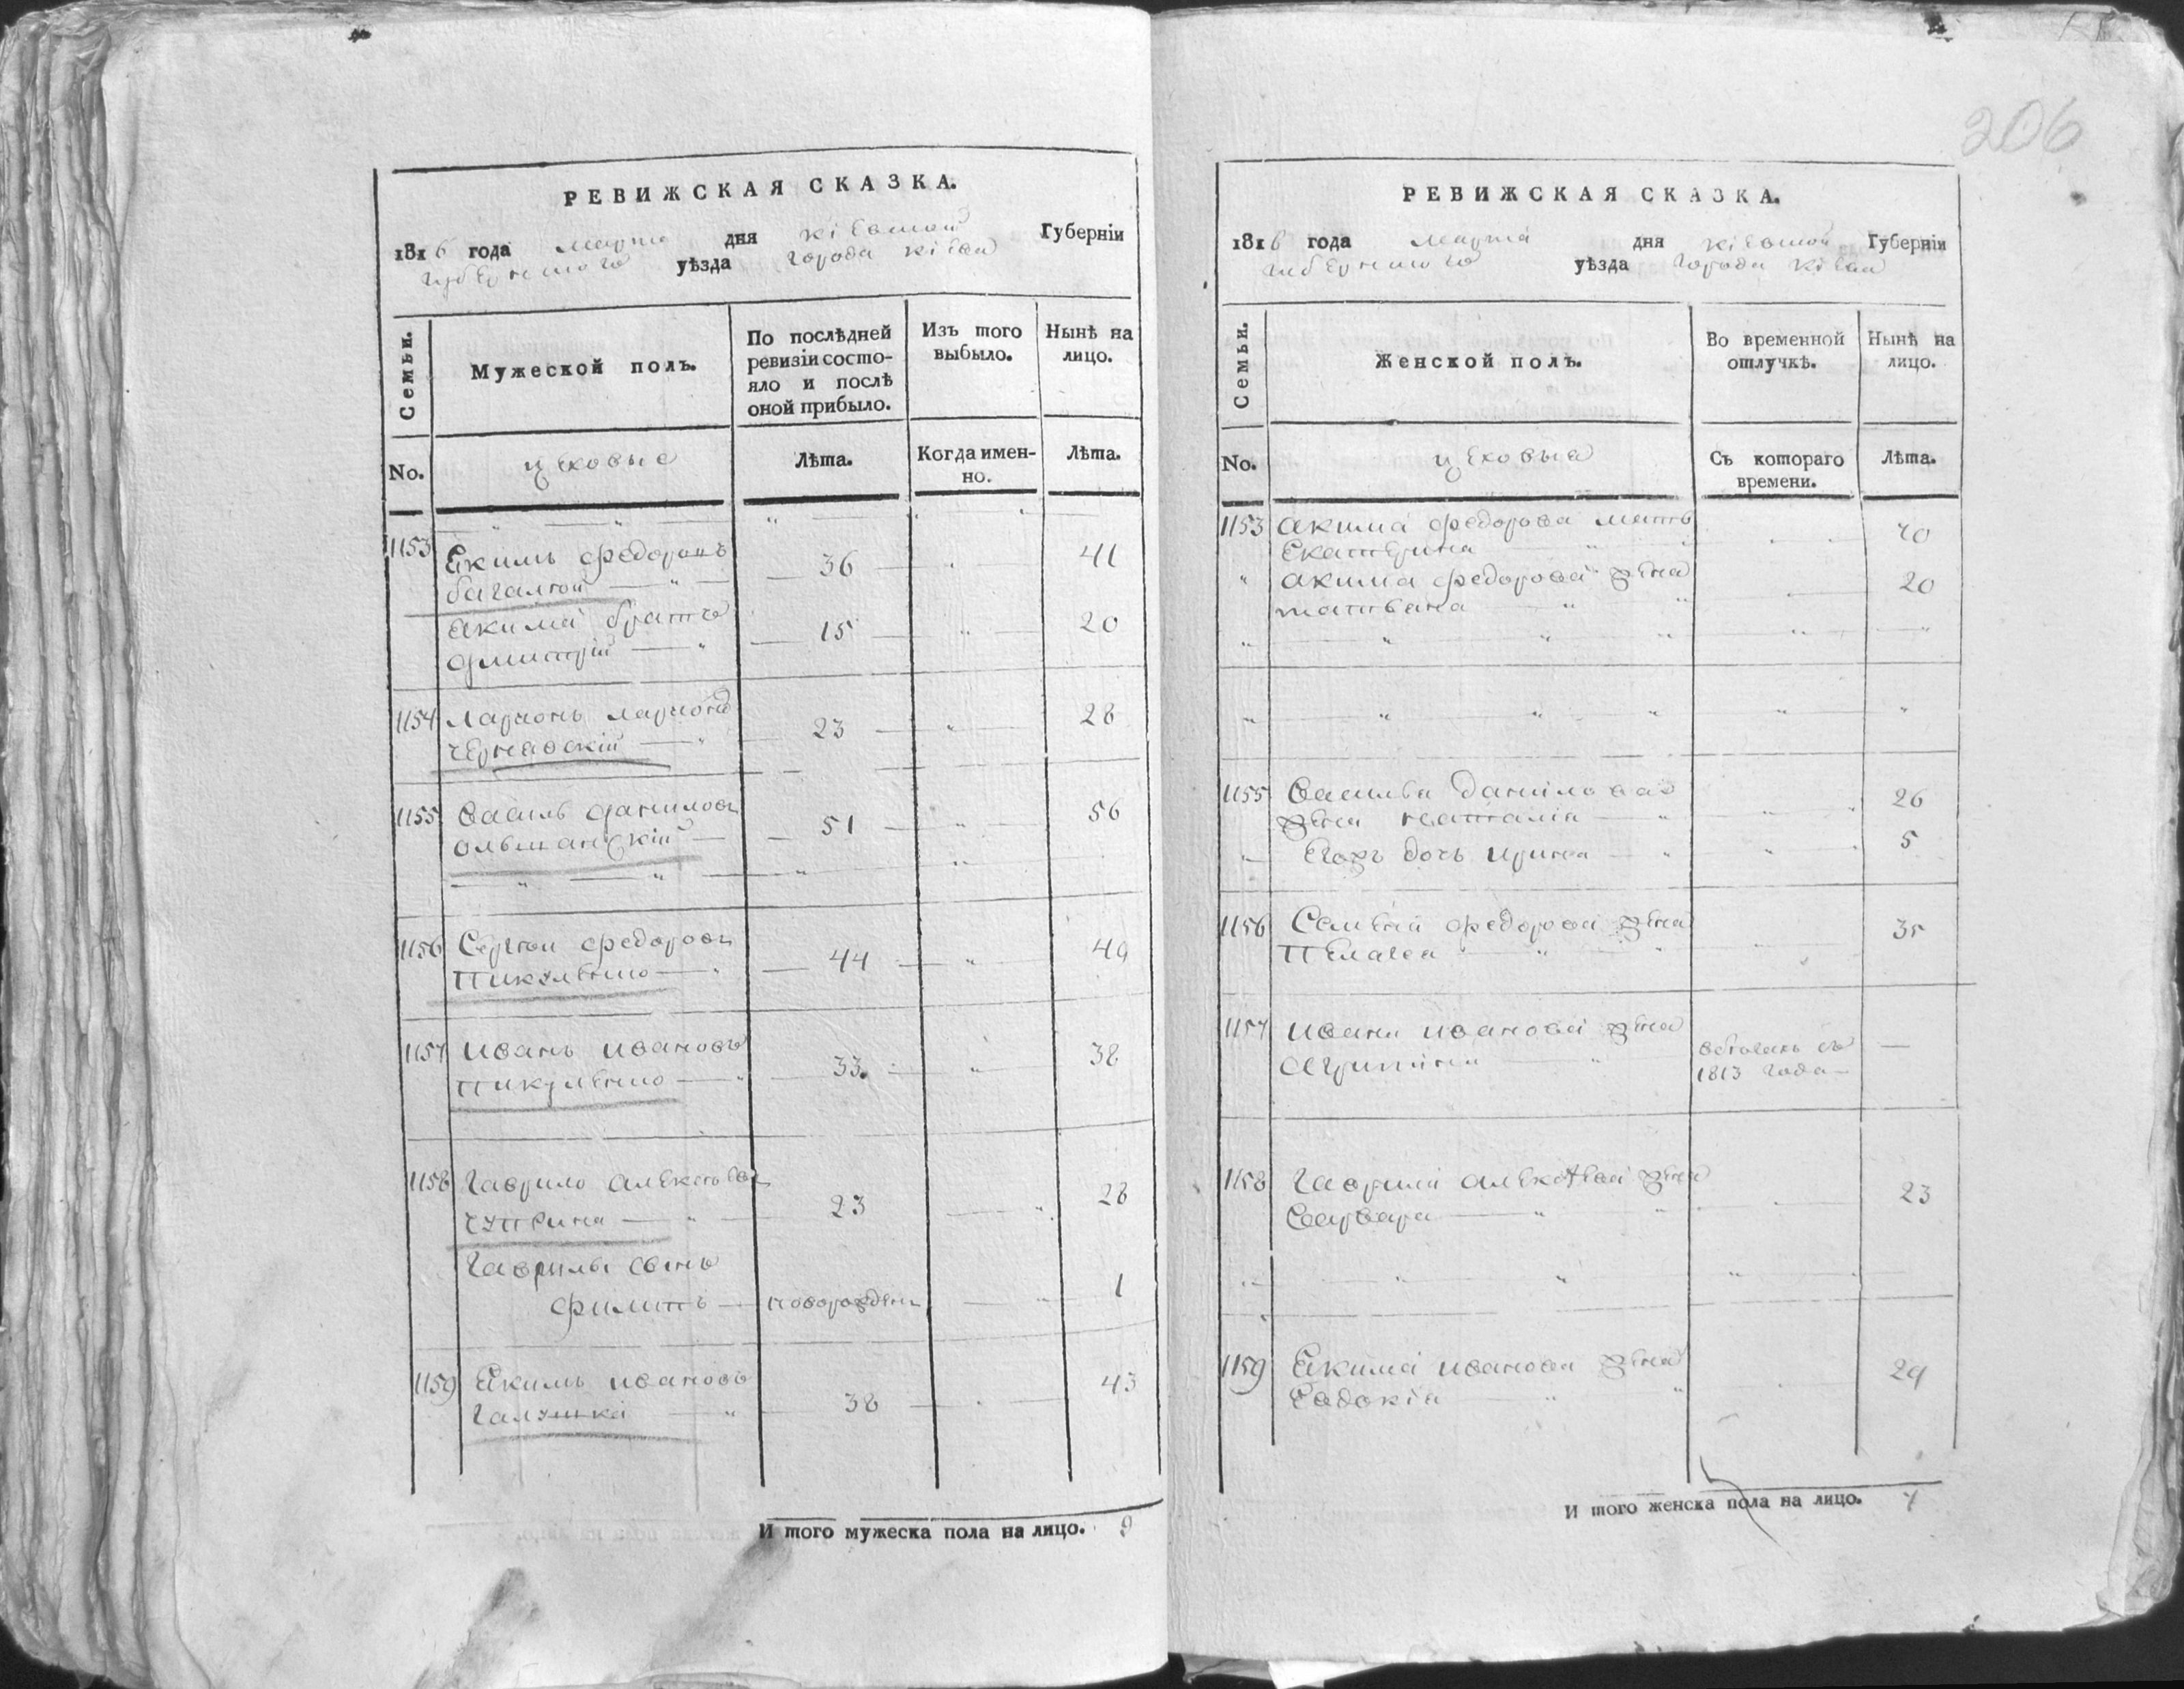 206
РЕВИЖСКАЯ СКАЗКА.
1816 года марта дня Кіевской Губерніи
Губернскаго уѣзда города Кіева
Семьи.
Мужеской полъ.
По послѣдней ревизіи состо-
яло и послѣ
оной прибыло.
Изъ того
выбыло.
Нынѣ на
лицо.
No.
цеховые
Лѣта.
Когда имен-
но.
Лѣта.
1153 Екимъ Федоровъ
36 41
Акима братъ
Дмитрій 15 20
1154 Ларионъ Ларионов
Чернавскій 23 28
1155 Василь Данилов
Ольшанскій 51 56
1156 Федоров
Пикуленко 44 49
1157 Иванъ Ивановъ
Пикуленко 33 38
1158 Гаврило Алексеев
Чуприна 23 28
Гаврилы сынъ
Филипъ новорожден 1
1159 Екимъ Ивановъ
Галушка 38 43
И того мужеска пола на лицо. 9
РЕВИЖСКАЯ СКАЗКА.
1816 года марта дня Кіевской Губерніи
Губернскаго уѣзда города Кіева
Семьи.
Женской полъ.
Во временной
отлучкѣ.
Нынѣ на
лицо.
No.
цеховые
Съ котораго
времени.
Лѣта.
1153 Акима Федорова мать
Екатерина 70
Акима Федорова жена
Татьяна 20
1155 Василья Данілова
жена Наталія 26
Егожъ дочь Ирина 5
1156 Федорова жена
Пелагея 35
1157 Ивана Иванова жена
Агрипина въ бегахъ съ
1813 года
1158 Гаврила Алексеева жена
Варвара 23
1159 Екима Иванова жена
Евдокія 29
И того женска пола на лицо. 7